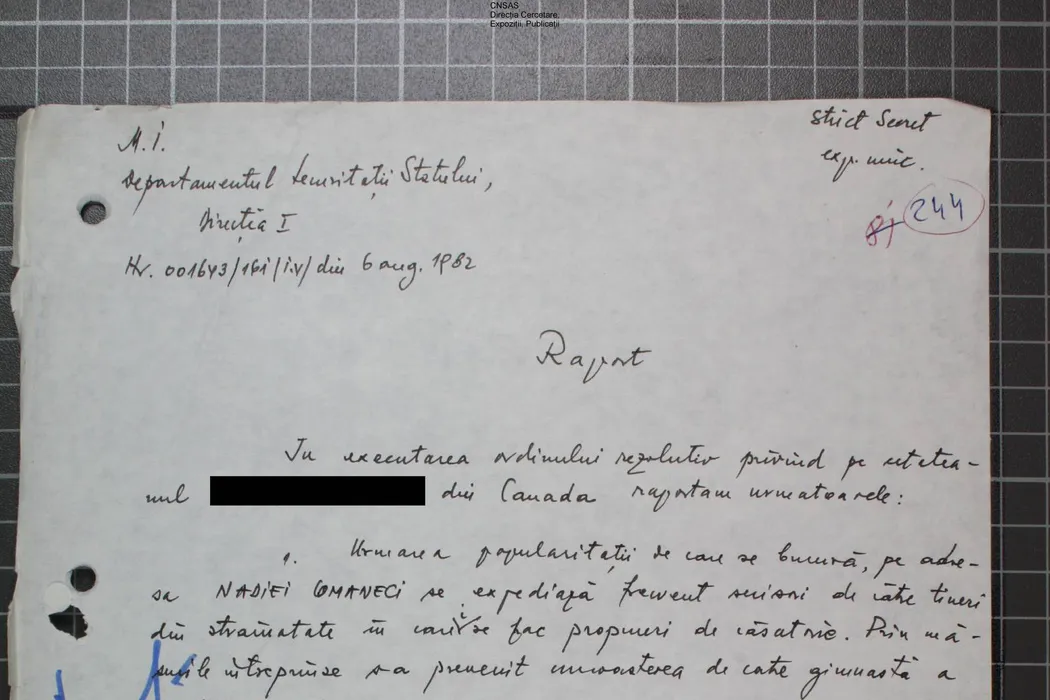 CNSAS
Direcția Cercetare,
Expoziții, Publicații
Strict Secret
ex. unic.
M.I.
Departamentul Securității Statului,
Direcția I
Nr. 001643/161/i.v/ din 6 aug. 1982
8) 244
Raport
In executarea ordinului rezolutiv privind pe cetatea-
nul din Canada raportam urmatoarele:
1. Urmarea popularității de care se bucură, pe adre-
sa NADIEI COMANECI se expediază frecvent scrisori de către tineri
din strainatate în care se fac propuneri de căsatorie. Prin mă-
surile întreprinse s-a prevenit cunoasterea de catre gimnastă a